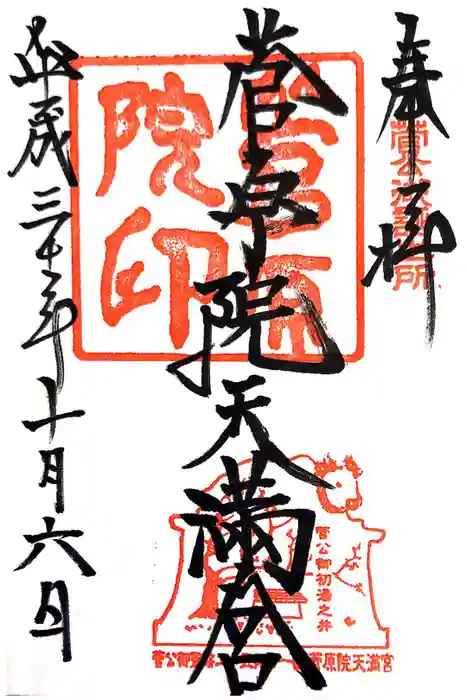 奉拝
菅公御誕生所
菅原院天満宮
菅原院印
菅公御初湯之井
菅原院天満宮
平成三十年十月六日